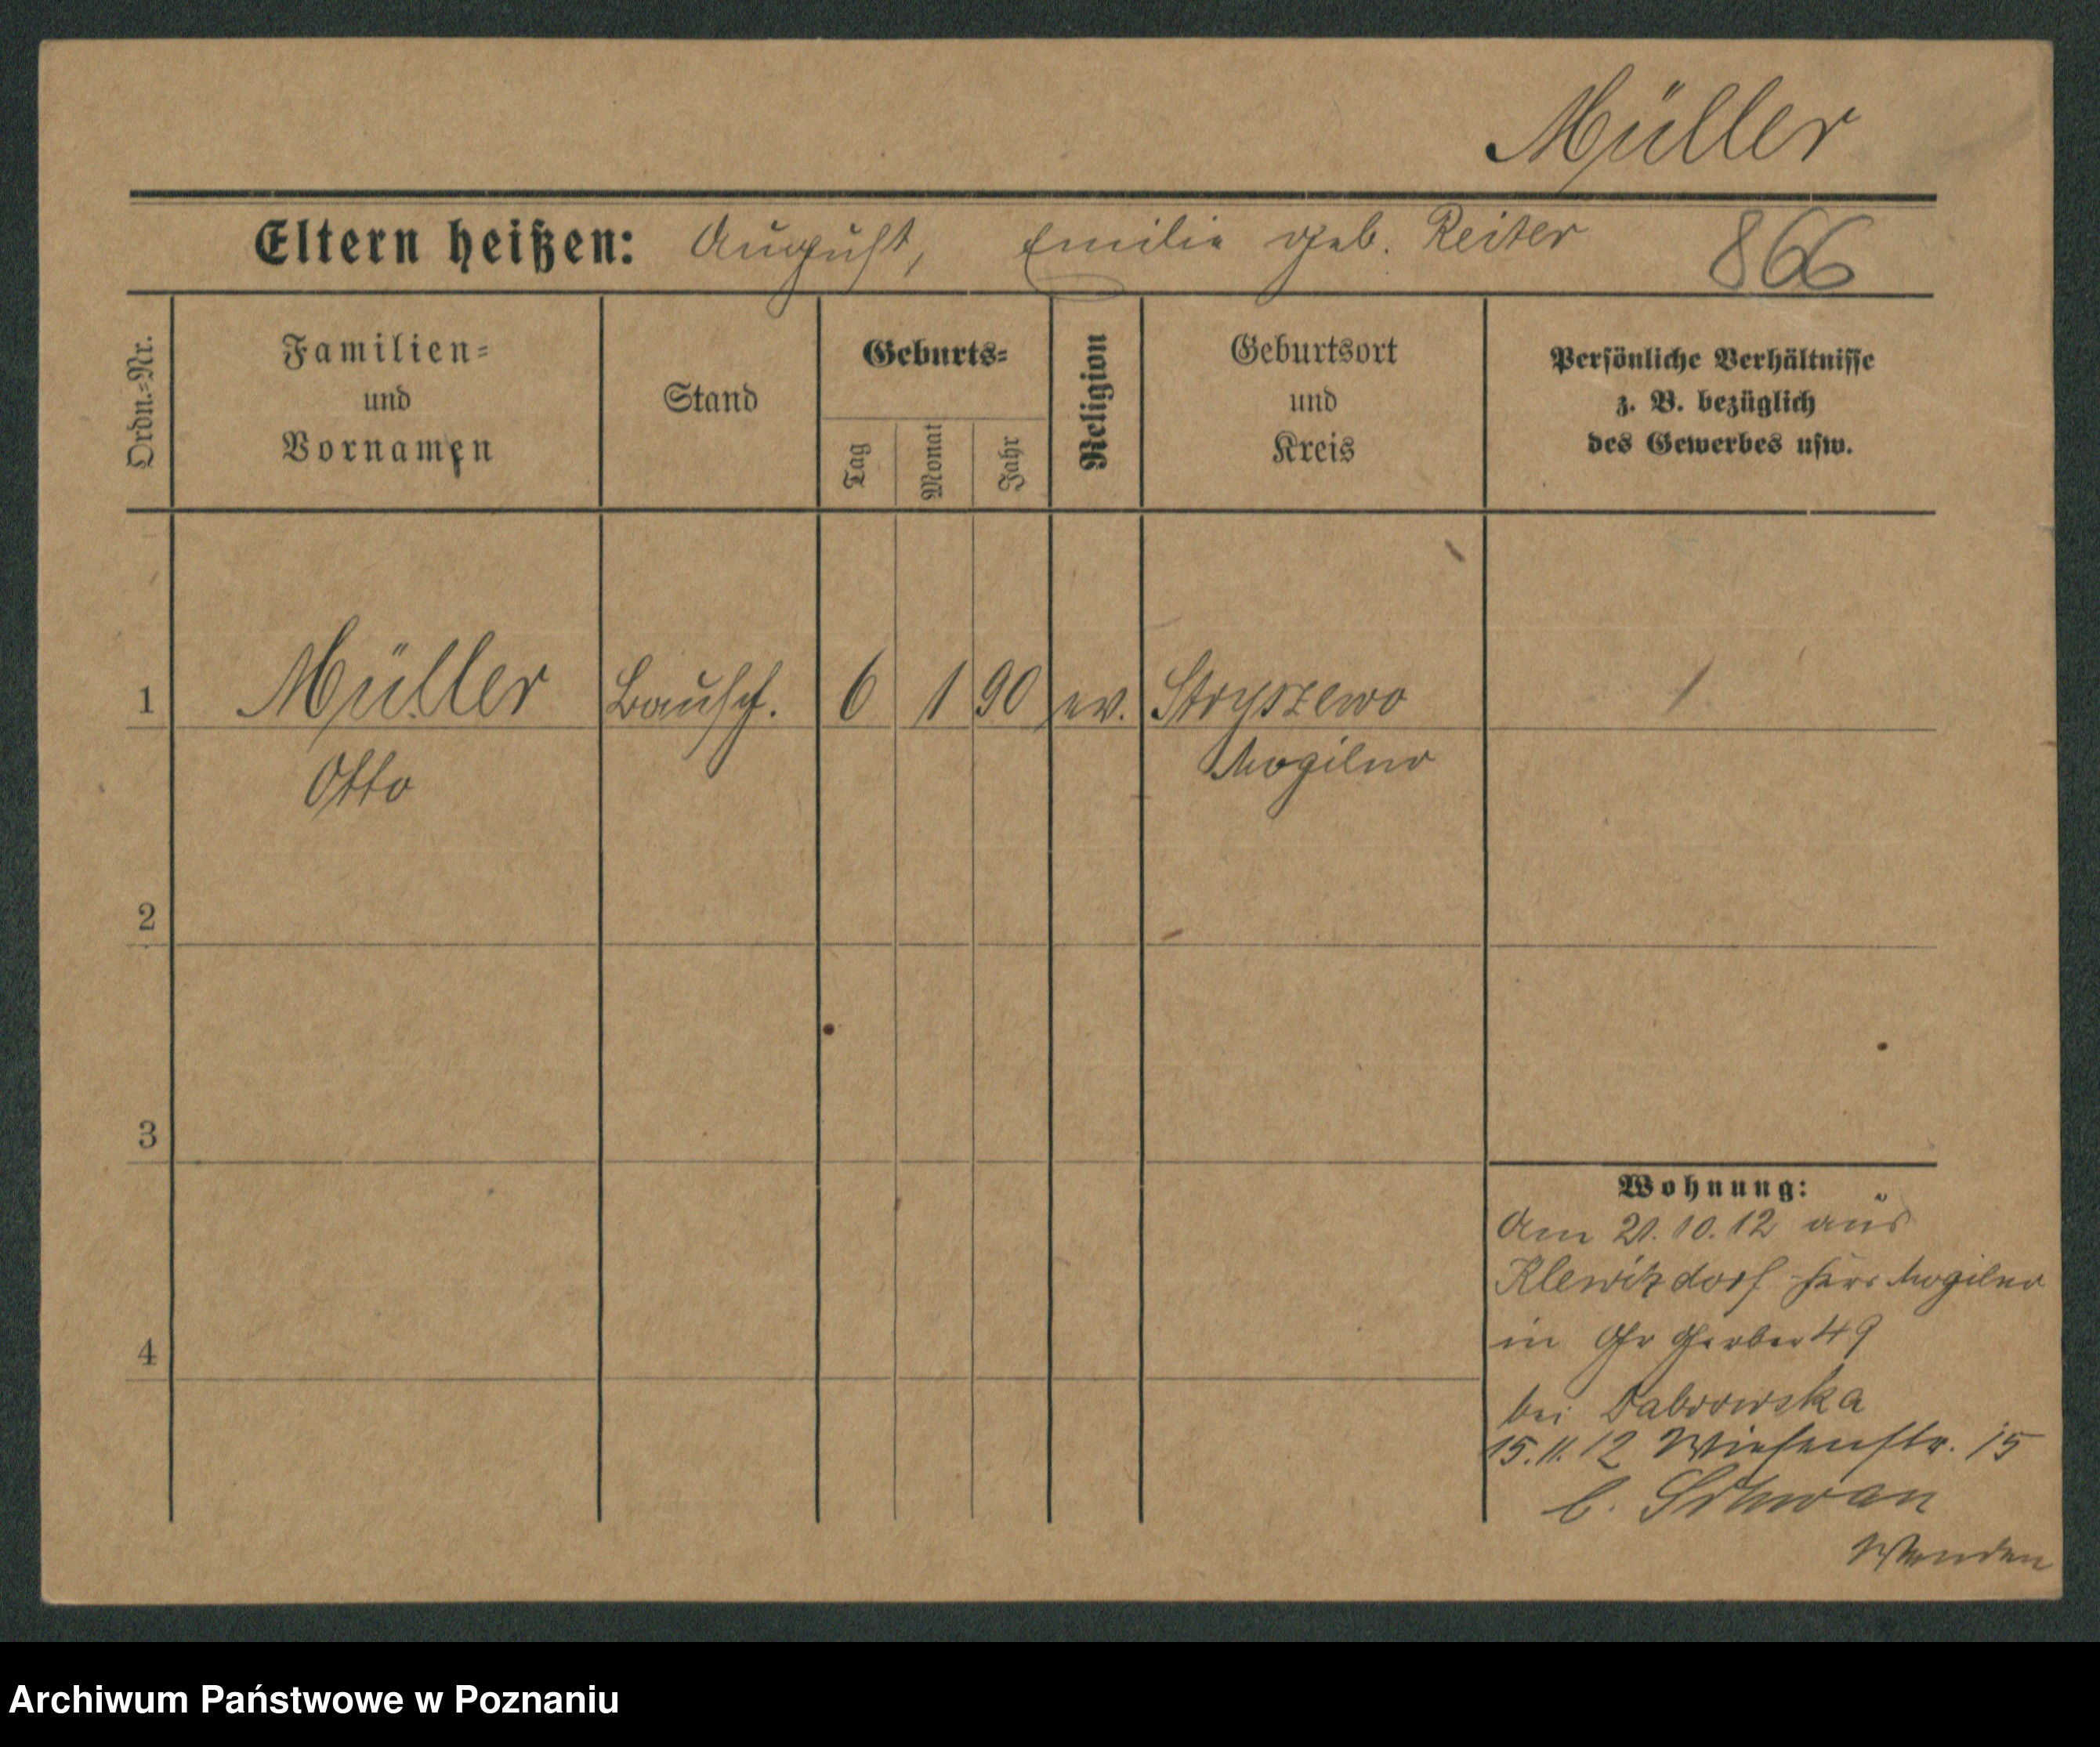 Müller
Eltern heißen: August, Emilie geb. Reiter 866
Ordn.=Nr.
Familien=
und
Vornamen
Stand
Geburts=
Tag
Monat
Jahr
Religion
Geburtsort
und
Kreis
Persönliche Verhältnisse
z. B. bezüglich
des Gewerbes usw.
1 Müller 6 1 90 ev. Stryszewo
Otto Mogilno
2
3
4
Wohnung:
Am 21.10.12 aus
Klewitzdorf Mogilno
in Gr Gerber 49
bei Dabrowska
15.11.12 Wiesenstr. 15
b. Schwan
Wenden
Archiwum Państwowe w Poznaniu